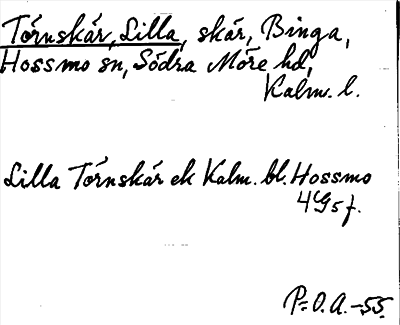 Törnskär, Lilla, skär, Binga,
Hossmo sn, Södra Möre hd,
Kalm. l.
Lilla Törnskär ek Kalm. bl. Hossmo
4G5f.
P:O.A.-55.